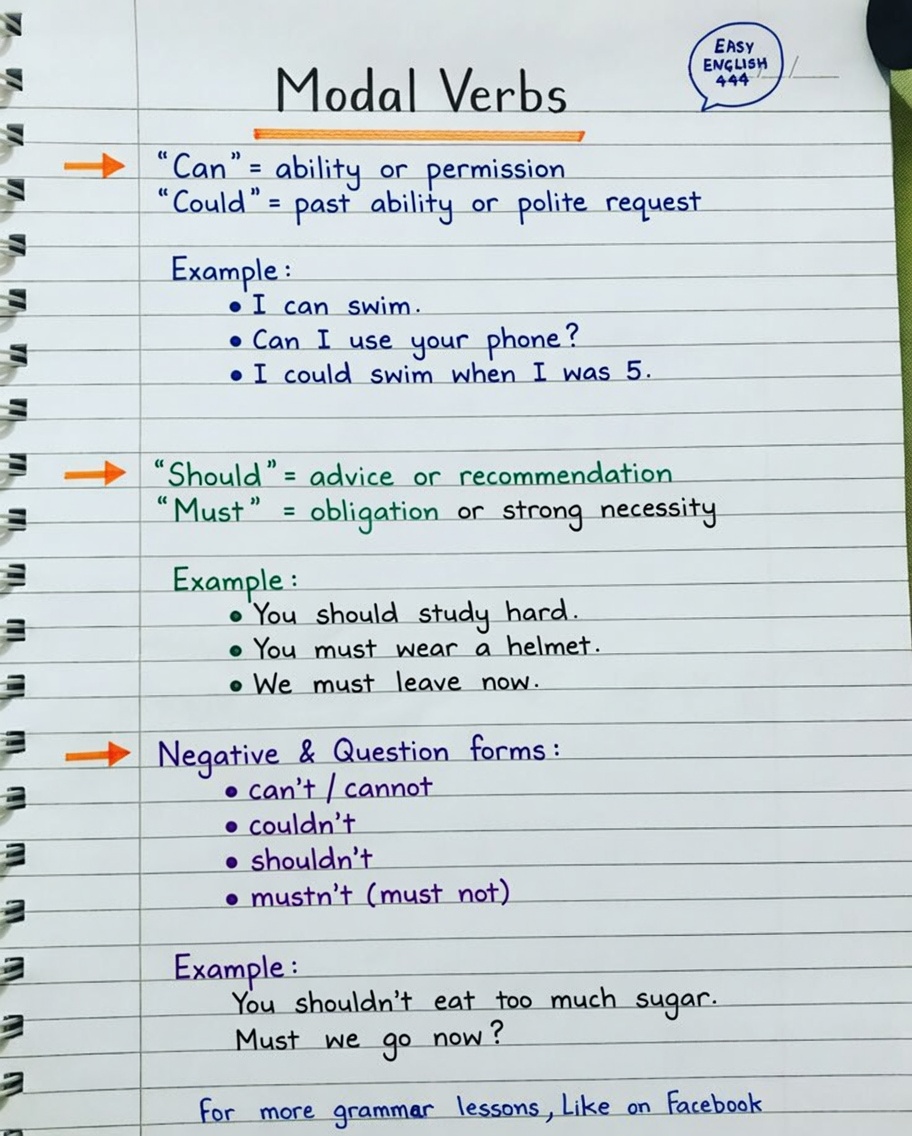 Modal Verbs
EASY
ENGLISH
444
"Can" = ability or permission
"Could" = past ability or polite request
Example:
• I can swim.
• Can I use your phone?
• I could swim when I was 5.
"Should" = advice or recommendation
"Must" = obligation or strong necessity
Example:
• You should study hard.
• You must wear a helmet.
• We must leave now.
Negative & Question forms:
• can't / cannot
• couldn't
• shouldn't
• mustn't (must not)
Example:
You shouldn't eat too much sugar.
Must we go now?
For more grammar lessons, Like on Facebook